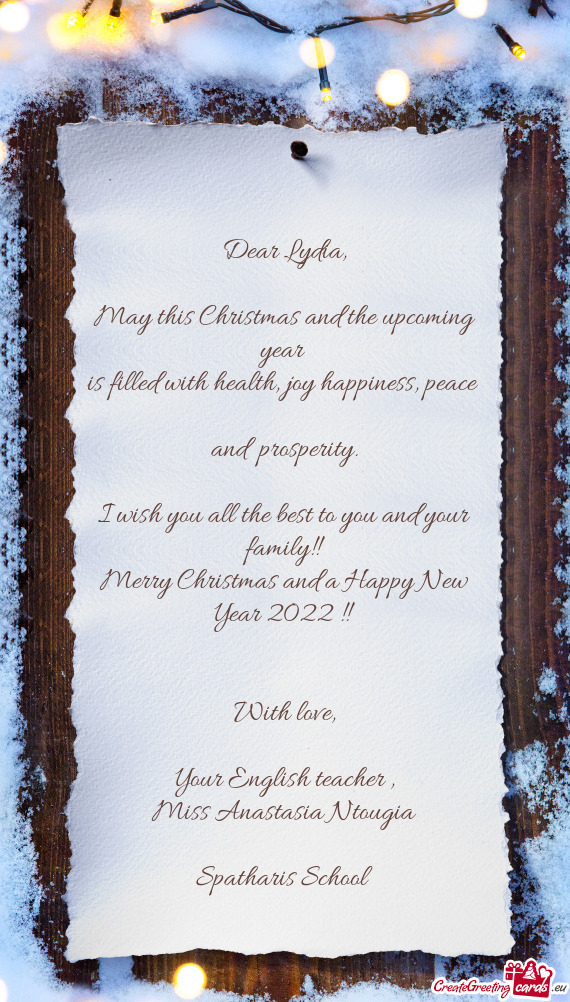 Dear Lydia,
May this Christmas and the upcoming
year
is filled with health, joy happiness, peace
and prosperity.
I wish you all the best to you and your
family!!
Merry Christmas and a Happy New
Year 2022 !!
With love,
Your English teacher ,
Miss Anastasia Ntougia
Spatharis School
CreateGreetingcards.eu